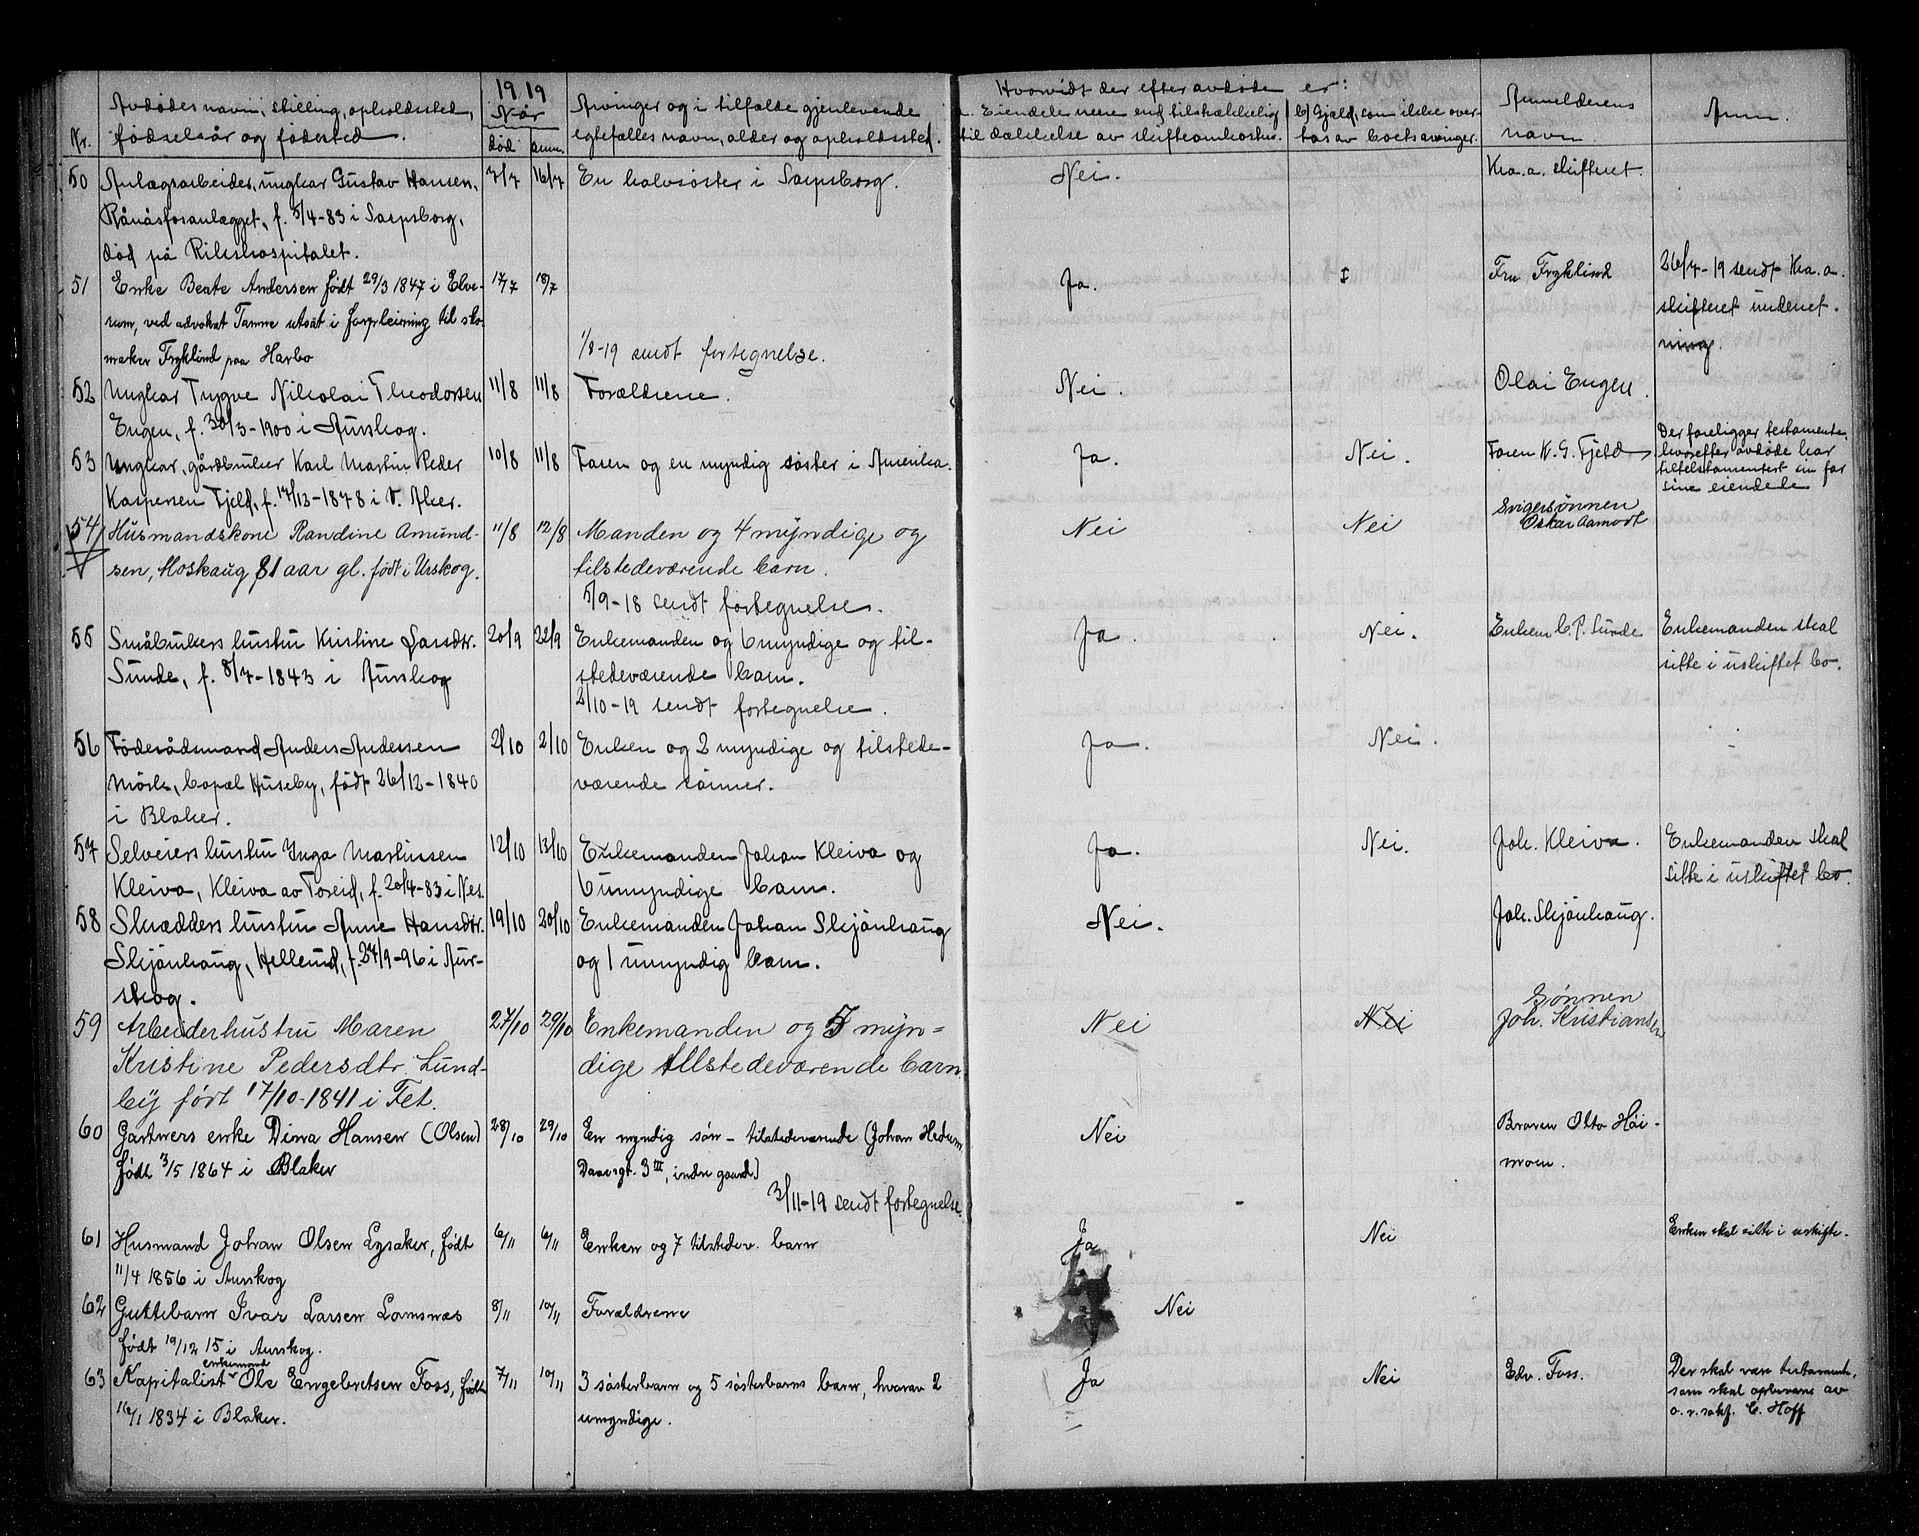 1919
Nr.
Avdødes navn, stilling, opholdssted,
fødselsår og fødested.
Når
død
anm.
Arvinger og i tilfælde gjenlevende
egtefælles navn, alder og opholdssted.
Hvorvidt der efter avdøde er:
a. Eiendele mere end tilstrækkelig
til dækkelse av skifteomkostn.
b) Gjæld, som ikke over-
tas av boets arvinger.
Anmelderens
navn.
Anm.
50 Anlægsarbeider, ungkar Gustav Hansen, 7/7 16/7 En halvsøster i Sarpsborg. Nei. Kra.a. skifteret.
Rånåsfosanlægget, f. 5/4-83 i Sarpsborg,
død på Rikshospitalet.
51 Enke Beate Andersen født 29/3 1847 i Elve- 17/7 18/7 Ja. Fru Fryklind 26/7-19 sendt Kra.a.
rum, ved advokat Tamne utsat i forpleining til sko- skifteret underret-
maker Fryklind paa Harbo 1/8-19 sendt fortegnelse. ning.
52 Ungkar Trygve Nikolai Theodorsen 11/8 11/8 Forældrene. Nei. Olai Engen.
Engen, f. 30/3-1900 i Aurskog.
53 Ungkar, gårdbruker Karl Martin Peder 10/8 11/8 Faren og en myndig søster i Amerika. Ja. Nei. Faren K. G. Fjeld Der foreligger testamente,
hvorefter avdøde har
Kaspersen Fjeld, f. 17/13-1878 i V. Aker. tiltestamentert sin far
sine eiendele
54 Husmandskone Randine Amund- 11/8 12/8 Manden og 4 myndige og Nei Nei Svigersønnen
Oskar Aamodt
sen, Moskaug 81 aar gl. født i Urskog. tilstedeværende barn.
5/9-18 sendt fortegnelse.
55 Småbrukers hustru Kristine Larsdtr. 20/9 22/9 Enkemanden og 6 myndige og til- Ja. Nei. Enkem C. P. Sunde Enkemanden skal
Sunde, f. 8/7-1843 i Aurskog stedeværende barn. sitte i uskiftet bo.
2/10-19 sendt fortegnelse.
56 Føderådsmand Anders Andersen 2/10 2/10 Enken og 2 myndige og tilstede- Ja. Nei.
Mørk, bopæl Huseby, født 26/12-1840 værende sønner.
i Blaker.
57 Selveiers hustru Inga Martinsen 12/10 13/10 Enkemanden Johan Kleiva og Ja. Nei. Joh. Kleiva. Enkemanden skal
Kleiva, Kleiva av Toreid, f. 20/4-83 i Nes. 6 umyndige barn. sitte i uskiftet bo.
58 Skrædders hustru Anne Hansdtr. 19/10 20/10 Enkemanden Johan Skjønhaug Nei. Joh. Skjønhaug.
Skjønhaug, Hellerud, f. 27/9-96 i Aur- og 1 umyndig barn.
skog.
59 Arbeiderhustru Maren 27/10 29/10 Enkemanden og 5 myn- Nei Nei Sønnen
Joh. Kristiansen
Kristine Pedersdtr. Lund- dige tilstedeværende barn.
by født 17/10-1841 i Fet.
60 Gartners enke Dina Hansen (Olsen) 28/10 29/10 En myndig søn – tilstedeværende (Johan Hedum Nei Broren Otto Høi-
født 3/5 1864 i Blaker Daaesgt. 3 III, indre gaard) moen.
3/11-19 sendt fortegnelse.
61 Husmand Johan Olsen Lysaker, født 6/11 6/11 Enken og 7 tilstedev. barn Ja Nei Enken skal sitte i uskifte.
11/4 1856 i Aurskog
62 Guttebarn Ivar Larsen Lomsnæs 8/11 10/11 Forældrene Nei
født 19/12 15 i Aurskog.
63 Kapitalist enkemand Ole Engebretsen Foss, født 7/11 10/11 3 søsterbarn og 5 søsterbarns barn, hvorav 2 Ja Nei Edv. Foss. Der skal være testamente,
16/1 1834 i Blaker. umyndige. som skal opbevares av
o.r.sakf. C. Hoff